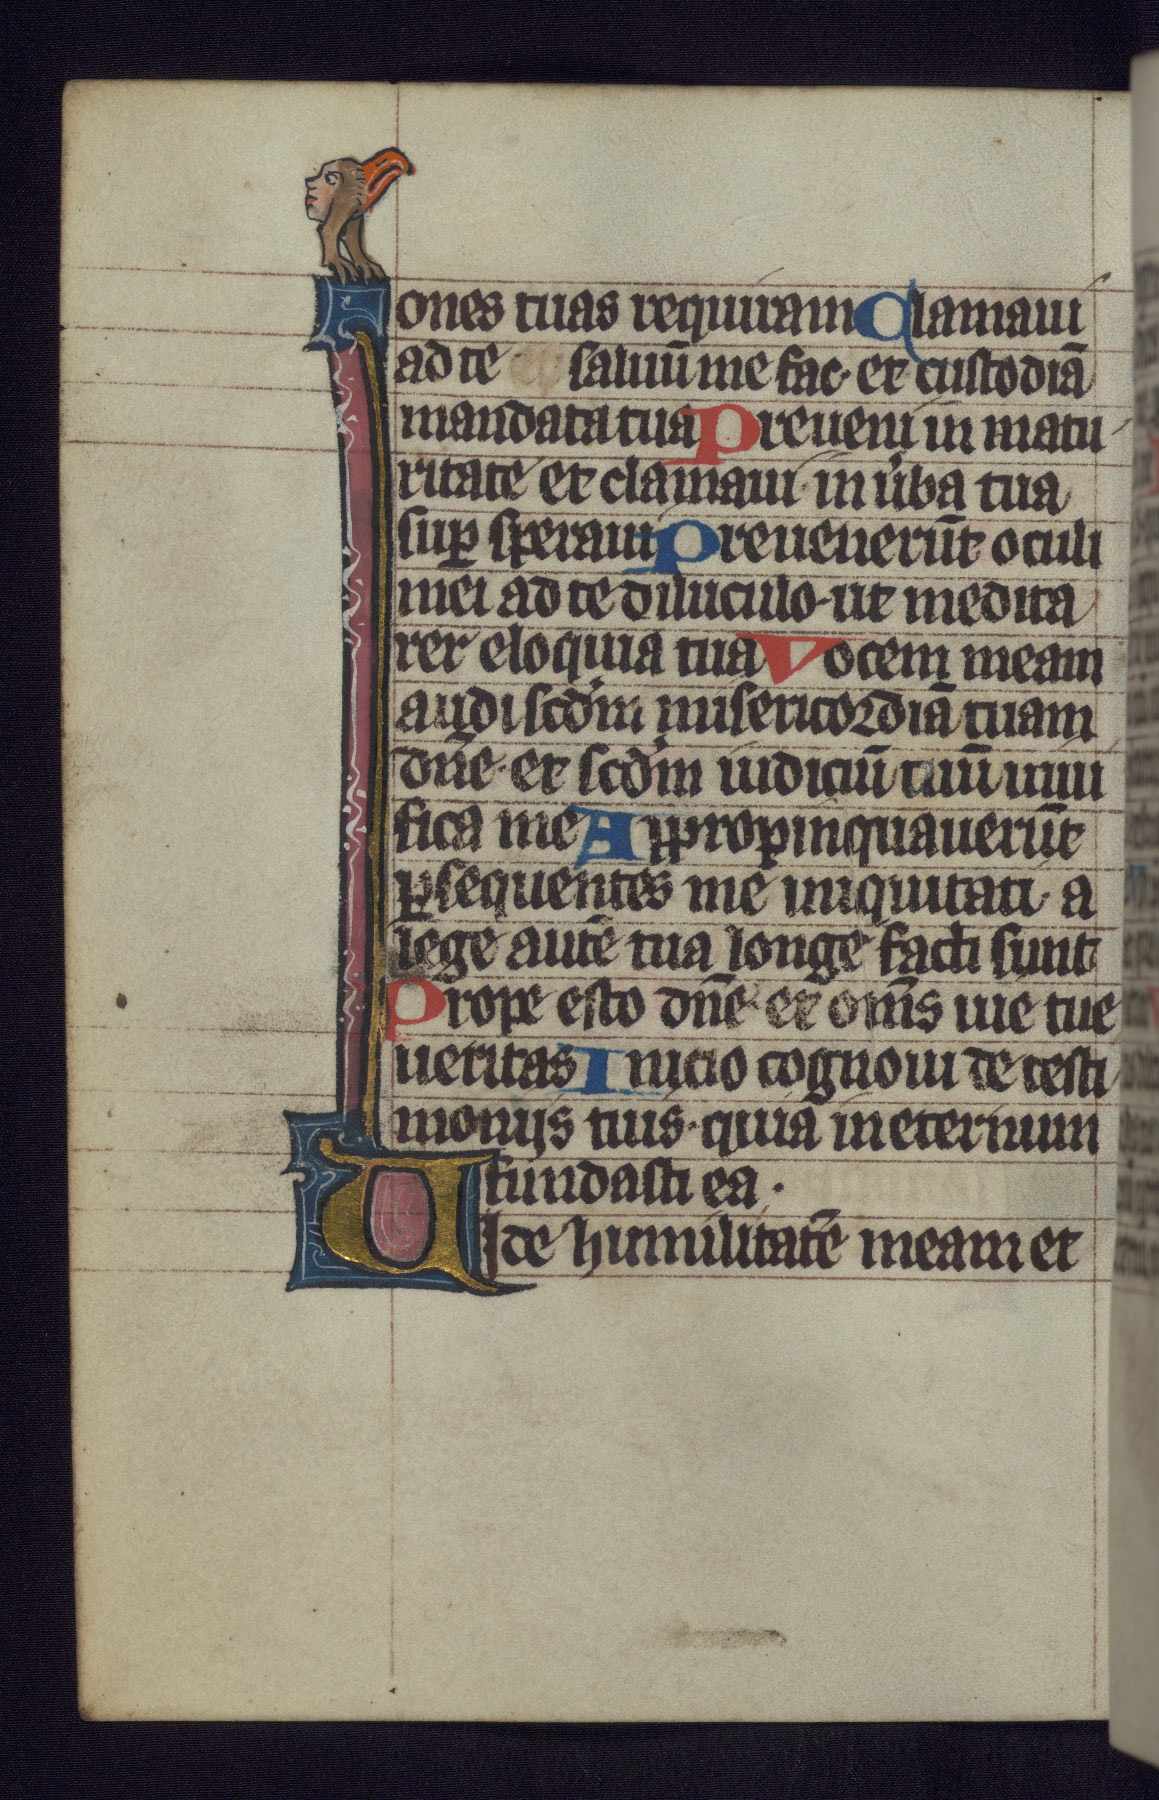 ones tuas requiram Clamaui
ad te saluū me fac· et custodiā
mandata tua Preueni in matu
ritate et clamaui in ũba tua
suꝑ speraui Preuenerūt oculi
mei ad te diluculo· ut medita
rer eloquia tua Vocem meam
audi scd̄m misericordiā tuam
dn̄e· et scd̄m iudiciū tuū uiui
fica me Appropinquauerūt
ꝑsequentes me iniquitati· a
lege autē tua longe facti sunt
Prope esto dn̄e· et om̄s uie tue
ueritas Inicio cognoui de testi
monijs tuis· quia in eternum
fundasti ea·
UIde humilitatē meam et